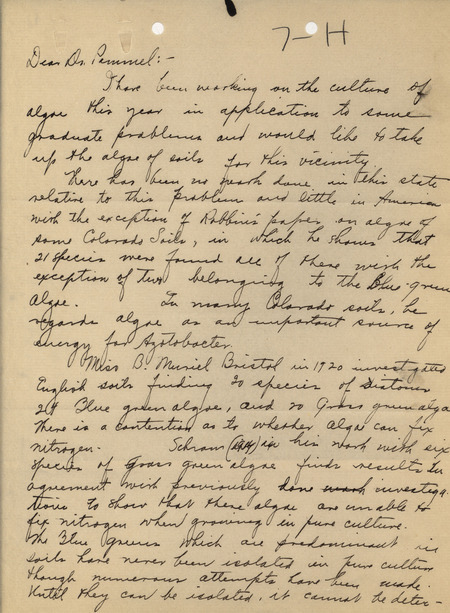 7-H
Dear Dr. Pammel:-
I have been working on the culture of
algae this year in application to some
graduate problems and would like to take
up the algae of soils for this vicinity.
There has been no work done in this state
relative to this problem and little in America
with the exception of Robbins paper on algae of
some Colorado Soils, in which he shows that
21 species were found all of these with the
exception of two belonging to the Blue-green
algae. In many Colorado soils, he
regards algae as an important source of
energy for Azotobacter.
Miss B. Muriel Bristol in 1920 investigated
English soils finding 20 species of Diatoms
24 Blue green algae, and 20 Grass green alga
There is a contention as to whether algae can fix
nitrogen. Schram (1914) in his work with six
species of Grass green algae finds results in
agreement with previously done work investiga
tions to show that these algae are unable to
fix nitrogen when growing in pure culture.
The Blue Greens which are predominant in
soils have never been isolated in pure culture
though numerous attempts have been made.
Until they can be isolated, it cannot be deter-